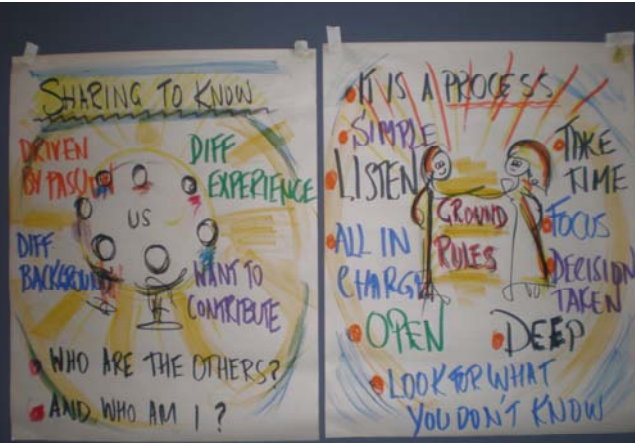 SHARING TO KNOW
DRIVEN
BY PASSION
DIFF
EXPERIENCE
US
DIFF
BACKGROUND
WANT TO
CONTRIBUTE
WHO ARE THE OTHERS?
AND WHO AM I?
IT IS A PROCESS
SIMPLE
LISTEN
TAKE
TIME
GROUND
RULES
FOCUS
ALL IN
CHARGE
DECISION
TAKEN
OPEN
DEEP
LOOK FOR WHAT
YOU DON'T KNOW